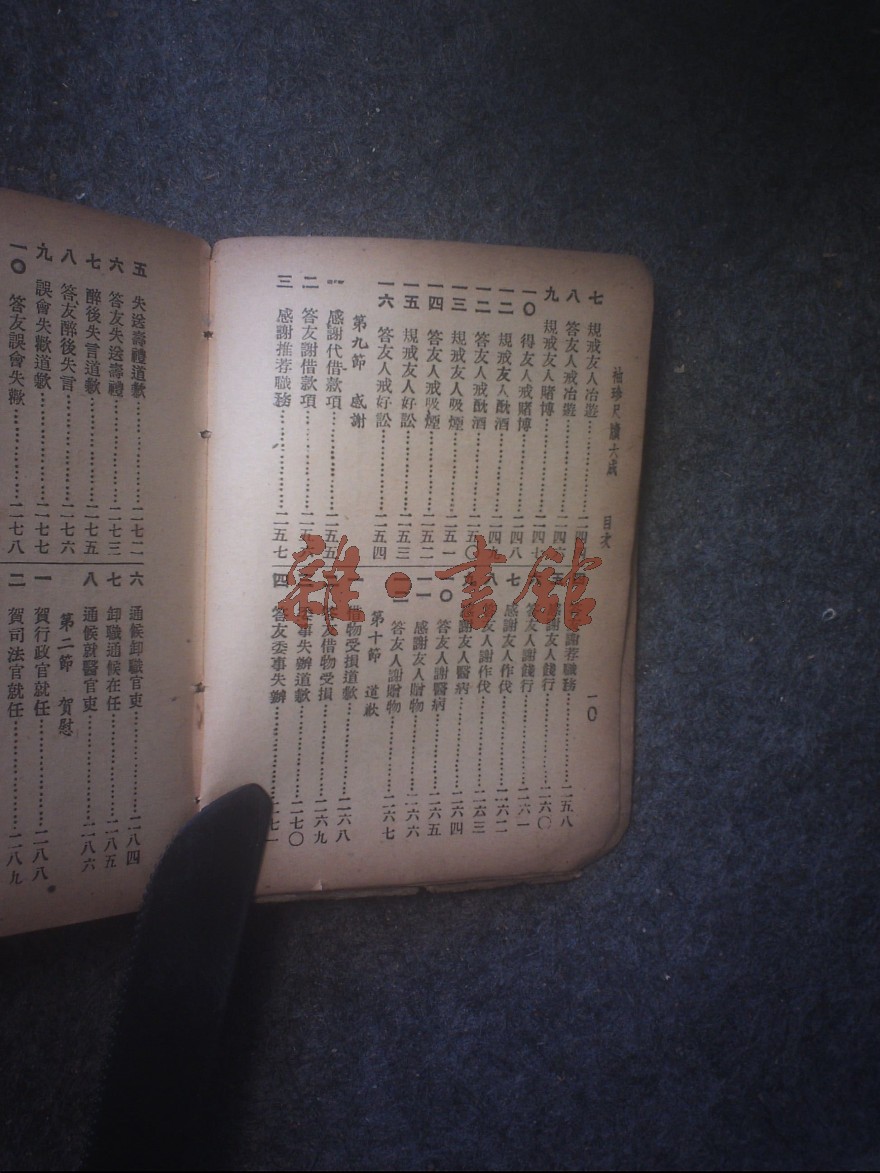 袖珍尺牘大成 目次 一〇
七 規戒友人冶遊
八 答友人戒冶遊
九 規戒友人賭博 二四七
一〇 得友人戒賭博 二四八
一一 規戒友人酗酒 二四九
一二 答友人戒酗酒 二五〇
一三 規戒友人吸煙 二五一
一四 答友人戒吸煙 二五二
一五 規戒友人好訟 二五三
一六 答友人戒好訟 二五四
第九節 感謝
一 感謝代借款項 二五五
二 答友謝借款項
三 感謝推荐職務 二五七
謝荐職務 二五八
謝友人餞行 二六〇
答友人謝餞行 二六一
七 感謝友人作伐 二六二
八 友人謝作伐 二六三
九 感謝友人醫病 二六四
一〇 答友人謝醫病 二六五
一一 感謝友人贈物 二六六
一二 答友人謝贈物 二六七
第十節 道歉
一 借物受損道歉 二六八
二 答友借物受損 二六九
三 委事失辦道歉 二七〇
四 答友委事失辦 二七一
五 失送壽禮道歉 二七二
六 答友失送壽禮 二七三
七 醉後失言道歉 二七五
八 答友醉後失言 二七六
九 誤會失歡道歉 二七七
一〇 答友誤會失歡 二七八
六 通候卸職官吏 二八四
七 卸職通候在任 二八五
八 通候就醫官吏 二八六
第二節 賀慰
一 賀行政官就任 二八八
二 賀司法官就任 二八九
雜·書館